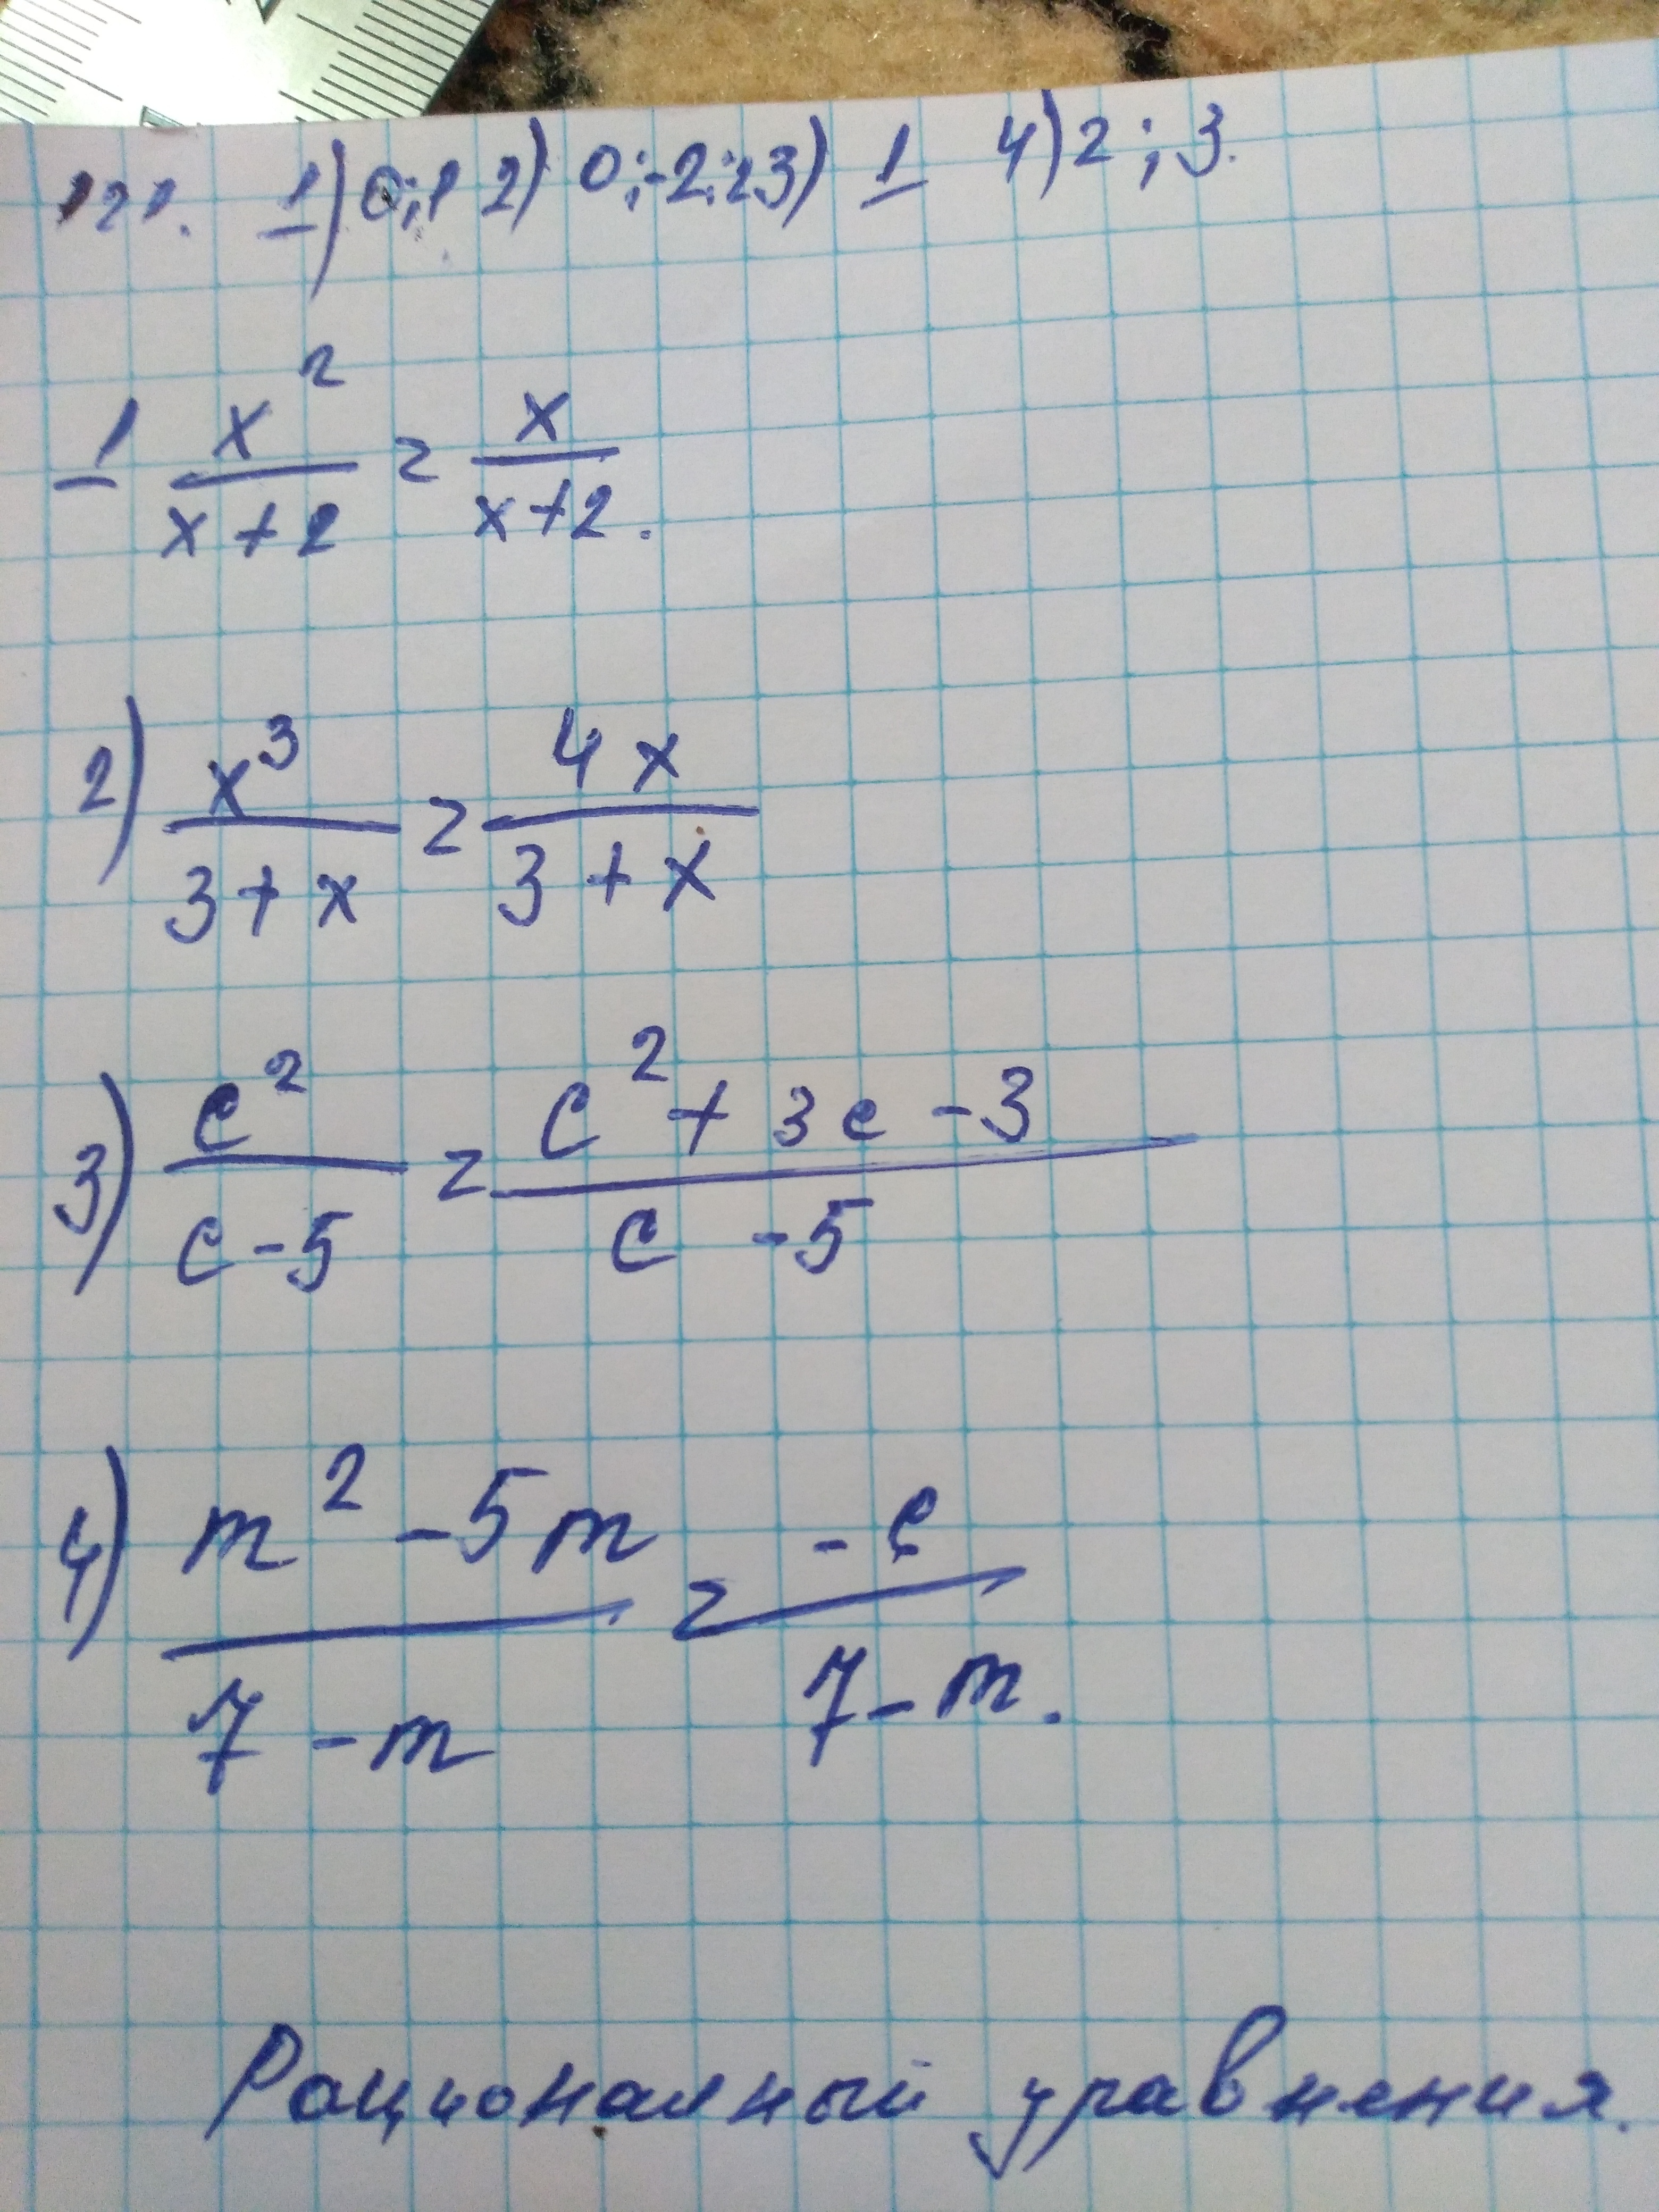 121. 1) 0;1 2) 0;-2;2 3) 1 4) 2;3.
1 x²/(x+2) = x/(x+2).
2) x³/(3+x) = 4x/(3+x)
3) c²/(c-5) = (c²+3c-3)/(c-5)
4) (m²-5m)/(7-m) = -c/(7-m).
Рационалный уравнения.